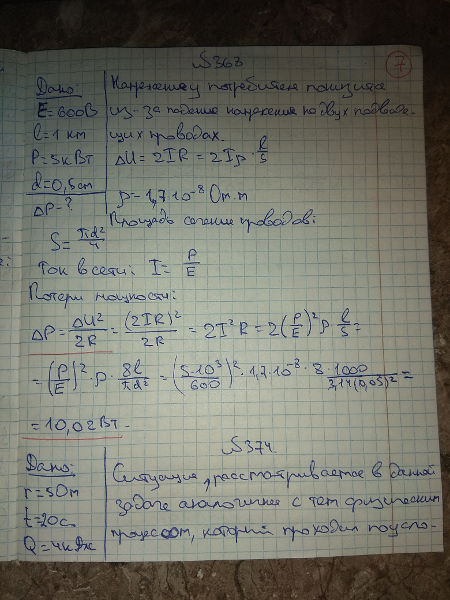 №368
7
Дано:
E=600В
l=1 км
P=5кВт
d=0,5см
ΔP=?
Напряжение у потребителя понизится
из-за падения напряжения на двух подводя-
щих проводах.
ΔU=2IR=2Iρ·l/S
ρ=1,7·10⁻⁸ Ом·м
Площадь сечения проводов:
S=πd²/4
Ток в сети: I=P/E
Потери мощности:
ΔP=ΔU²/2R=(2IR)²/2R=2I²R=2(P/E)²ρ·l/S=
=(P/E)²·ρ·8l/πd²=(5·10³/600)²·1,7·10⁻⁸·8·1000/3,14(0,05)²=
=10,02Вт.
№374.
Дано:
r=5Ом
t=20с
Q=4кДж
Ситуация, рассматривается в данной
задаче аналогичнее с тем физическим
процессом, который проходил по усло-